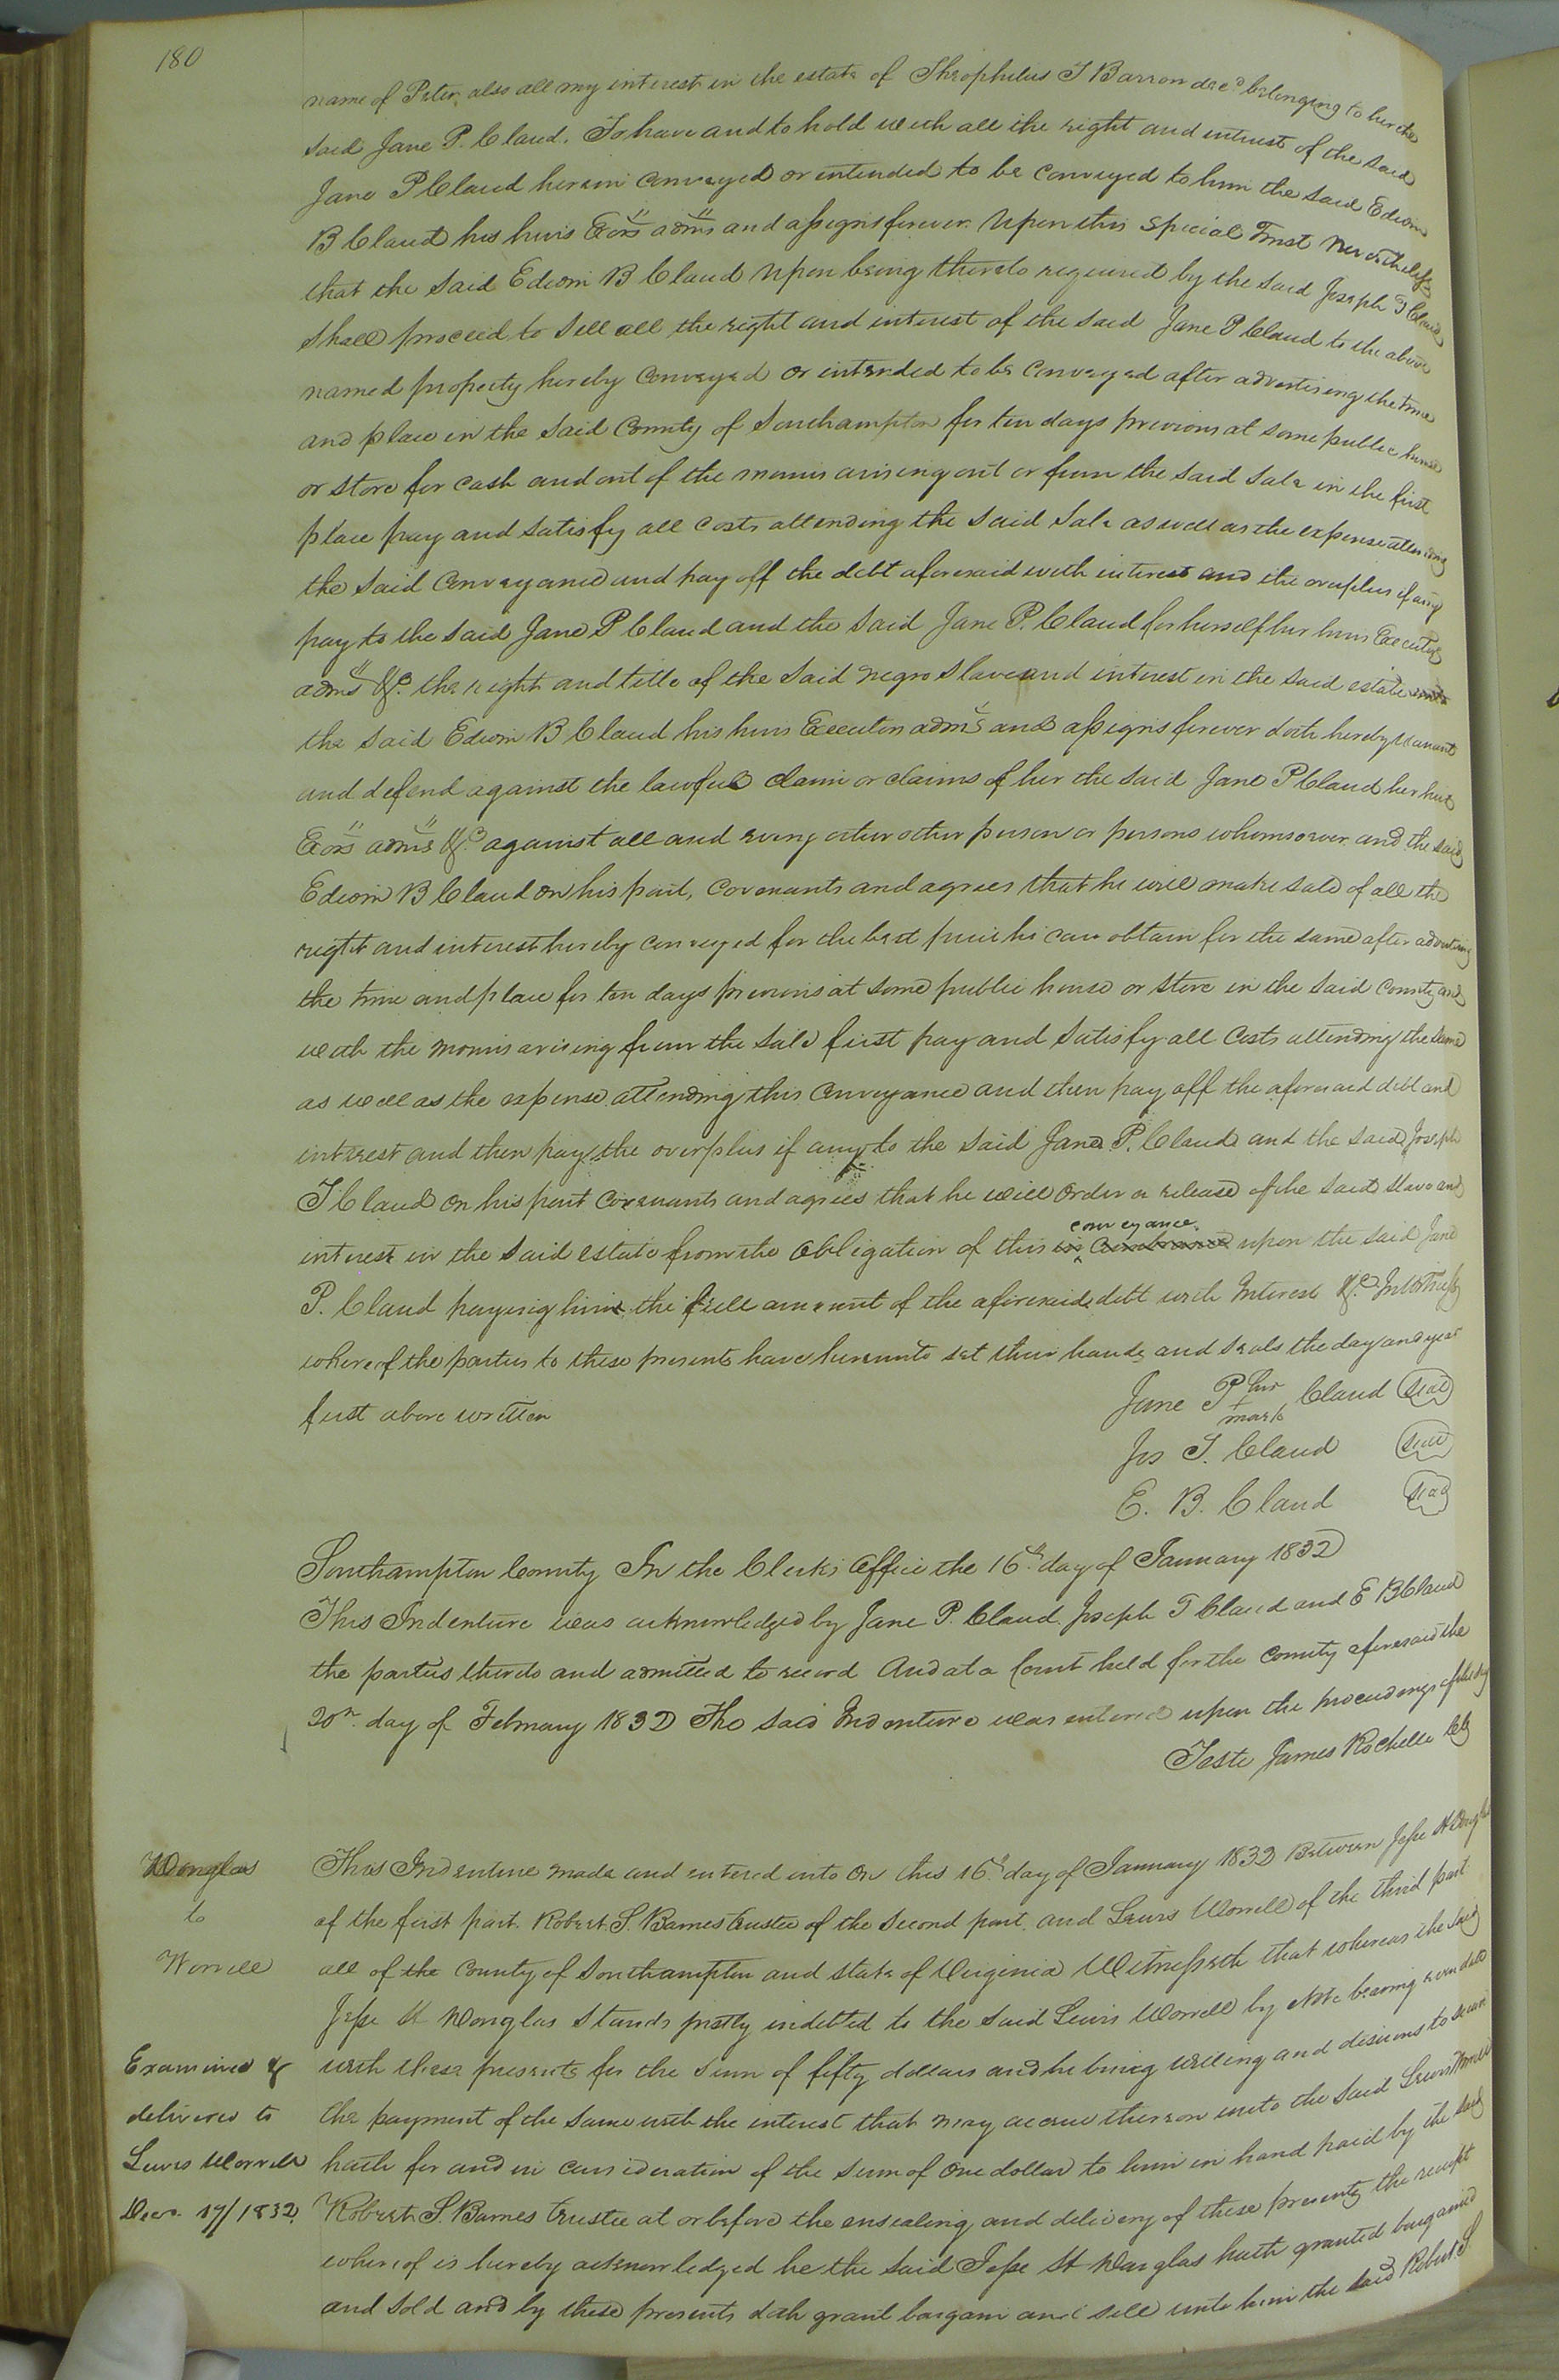 180
name of Peter, also all my interest in the estate of Theophilus T Barron decd belonging to her the
said Jane P. Claud. To have and to hold with all the right and interest of the said
Jane P Claud herein conveyed or intended to be conveyed to him the said Edwin
B Claud his heirs Exors adms and assigns forever. Upon this special Trust nevertheless
that the said Edwin B Claud upon being thereto required by the said Joseph T Claud
shall proceed to sell all the right and interest of the said Jane P Claud to the above
named property hereby conveyed or intended to be conveyed after advertising the time
and place in the said County of Southampton for ten days previous at some public house
or store for cash and out of the monies arising out or from the said sale in the first
place pay and satisfy all costs attending the said sale as well as the expense attending
the said conveyance and pay off the debt aforesaid with interest and the overplus if any
pay to the said Jane P Claud and the said Jane P. Claud for herself her heirs Executors
adms &c. the right and title of the said negro slave and interest in the said estate unto
the said Edwin B Claud his heirs Executors adms and assigns forever doth hereby warrant
and defend against the lawful claim or claims of her the said Jane P Claud her heirs
Exors adms &c against all and every other other person or persons whomsoever and the said
Edwin B Claud on his part, covenants and agrees that he will make sale of all the
right and interest hereby conveyed for the best price he can obtain for the same after advertising
the time and place for ten days previous at some public house or store in the said County and
with the monies arising from the sale first pay and satisfy all costs attending the same
as well as the expense attending this conveyance and then pay off the aforesaid debt and
interest and then pay the overplus if any to the said Jane P. Claud and the said Joseph
T Claud on his part covenants and agrees that he will order a release of the said slave and
interest in the said estate from the obligation of this conveyance upon the said Jane
P. Claud paying him the full amount of the aforesaid debt with Interest &c. In Testimony
whereof the parties to these presents have hereunto set their hands and seals the day and year
first above written
Jane P her + mark Claud seal
Jos T. Claud seal
E. B. Claud seal
Southampton County In the Clerks Office the 16th day of January 1832
This Indenture was acknowledged by Jane P. Claud, Joseph T Claud and E B Claud
the parties thereto and admitted to record And at a Court held for the County aforesaid the
20th day of February 1832 The said Indenture was entered upon the proceedings of the day
Teste James Rochelle Clk
Douglas
to
Worrell
Examined &
delivered to
Lewis Worrell
Decr. 17/1832.
This Indenture made and entered into on this 16th day of January 1832 Between Jesse H Douglas
of the first part. Robert S. Barnes trustee of the second part. and Lewis Worrell of the third part
all of the County of Southampton and state of Virginia Witnesseth that whereas the said
Jesse H Douglas stands justly indebted to the said Lewis Worrell by note bearing even date
with these presents for the sum of fifty dollars and he being willing and desirous to secure
the payment of the same with the interest that may accrue thereon unto the said Lewis Worrell
hath for and in consideration of the sum of one dollar to him in hand paid by the said
Robert S. Barnes trustee at or before the ensealing and delivery of these presents the receipt
whereof is hereby acknowledged he the said Jesse H Douglas hath granted bargained
and sold and by these presents doth grant bargain and sell unto him the said Robert S.